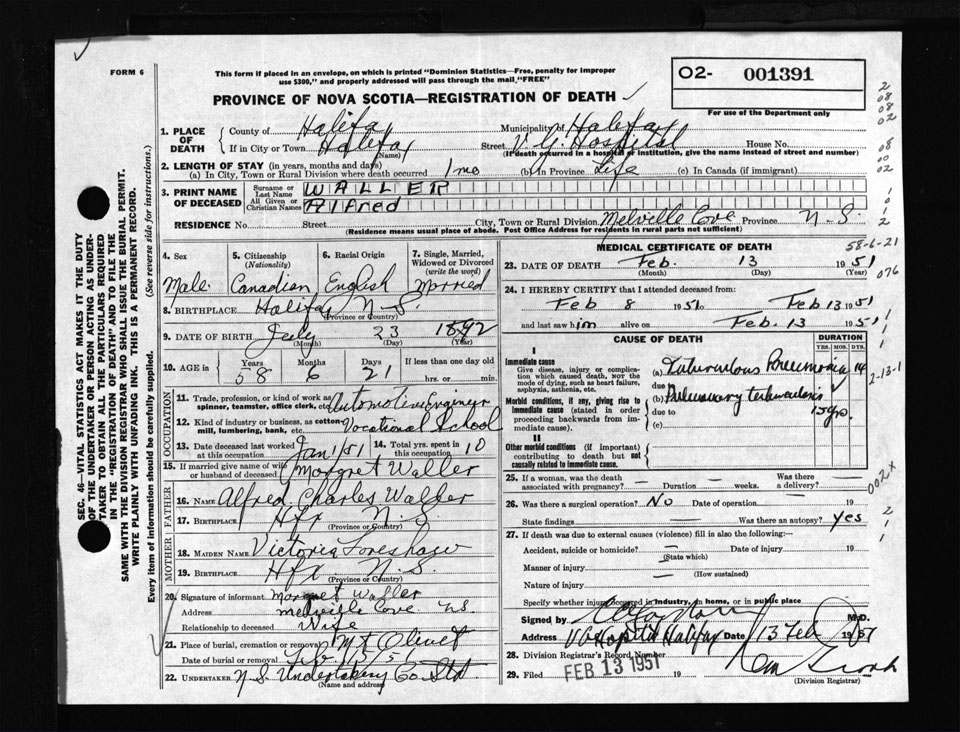 FORM 6
This form if placed in an envelope, on which is printed "Dominion Statistics—Free, penalty for improper
use $300," and properly addressed will pass through the mail "FREE"
O2- 001391
For use of the Department only
PROVINCE OF NOVA SCOTIA—REGISTRATION OF DEATH
1. PLACE OF DEATH
County of Halifax Municipality of Halifax
If in City or Town Halifax Street V.G. Hospital House No.
(Name) (If death occurred in a hospital or institution, give the name instead of street and number)
2. LENGTH OF STAY (in years, months and days)
(a) In City, Town or Rural Division where death occurred 1 mo (b) In Province Life (c) In Canada (if immigrant)
3. PRINT NAME OF DECEASED
Surname or Last Name WALLER
All Given or Christian Names Alfred
RESIDENCE No. Street City, Town or Rural Division Melville Cove Province N.S.
(Residence means usual place of abode. Post Office Address for residents in rural parts not sufficient)
4. Sex Male
5. Citizenship (Nationality) Canadian
6. Racial Origin English
7. Single, Married, Widowed or Divorced (write the word) Married
8. BIRTHPLACE Halifax N.S.
(Province or Country)
9. DATE OF BIRTH July 23 1892
(Month) (Day) (Year)
10. AGE in Years 58 Months 6 Days 21 If less than one day old
hrs. or min.
OCCUPATION
11. Trade, profession, or kind of work as spinner, teamster, office clerk, etc. Automotive Enginer
12. Kind of industry or business, as cotton mill, lumbering, bank, etc. Vocational School
13. Date deceased last worked at this occupation Jan 1/51
14. Total yrs. spent in this occupation 10
15. If married give name of wife or husband of deceased Margret Waller
FATHER
16. NAME Alfred Charles Waller
17. BIRTHPLACE Hfx N.S.
(Province or Country)
MOTHER
18. MAIDEN NAME Victoria
19. BIRTHPLACE Hfx. N.S.
(Province or Country)
20. Signature of informant Margret Waller
Address Melville Cove NS
Relationship to deceased Wife
21. Place of burial, cremation or removal Mt Olivet
Date of burial or removal Feb 15/5
22. UNDERTAKER N.S. Undertaking Co. Ltd
(Name and address)
MEDICAL CERTIFICATE OF DEATH
58-6-21
23. DATE OF DEATH Feb. 13 1951
(Month) (Day) (Year)
076
24. I HEREBY CERTIFY that I attended deceased from:
Feb 8 1951 to Feb 13 1951
and last saw him alive on Feb. 13 1951
CAUSE OF DEATH
DURATION
YRS. MOS. DYS.
I
Immediate cause
Give disease, injury or complication which caused death, NOT the mode of dying, such as heart failure, asphyxia, asthenia, etc.
(a) Tuberculous Pneumonia 14
due to
2-13-1
Morbid conditions, if any, giving rise to immediate cause (stated in order proceeding backwards from immediate cause).
(b) Pulmonary tuberculosis
due to 15 yrs.
(c)
II
Other morbid conditions (if important) contributing to death but not causally related to immediate cause.
25. If a woman, was the death associated with pregnancy? — Duration — weeks. Was there a delivery? —
002x
26. Was there a surgical operation? No Date of operation 19
State findings Was there an autopsy? yes
27. If death was due to external causes (violence) fill in also the following:
Accident, suicide or homicide? — Date of injury 19
(State which)
Manner of injury —
(How sustained)
Nature of injury —
Specify whether injury occurred in industry, in home, or in public place
Signed by M.D.
Address V G Hospital Halifax Date 13 Feb 1951
28. Division Registrar's Record Number
29. Filed FEB 13 1951 19
(Division Registrar)
SEC. 46—VITAL STATISTICS ACT MAKES IT THE DUTY
OF THE UNDERTAKER OR PERSON ACTING AS UNDER-
TAKER TO OBTAIN ALL THE PARTICULARS REQUIRED
IN THE "REGISTRATION OF DEATH" AND TO FILE THE
SAME WITH THE DIVISION REGISTRAR WHO SHALL ISSUE THE BURIAL PERMIT.
WRITE PLAINLY WITH UNFADING INK. THIS IS A PERMANENT RECORD.
Every item of information should be carefully supplied. (See reverse side for instructions.)